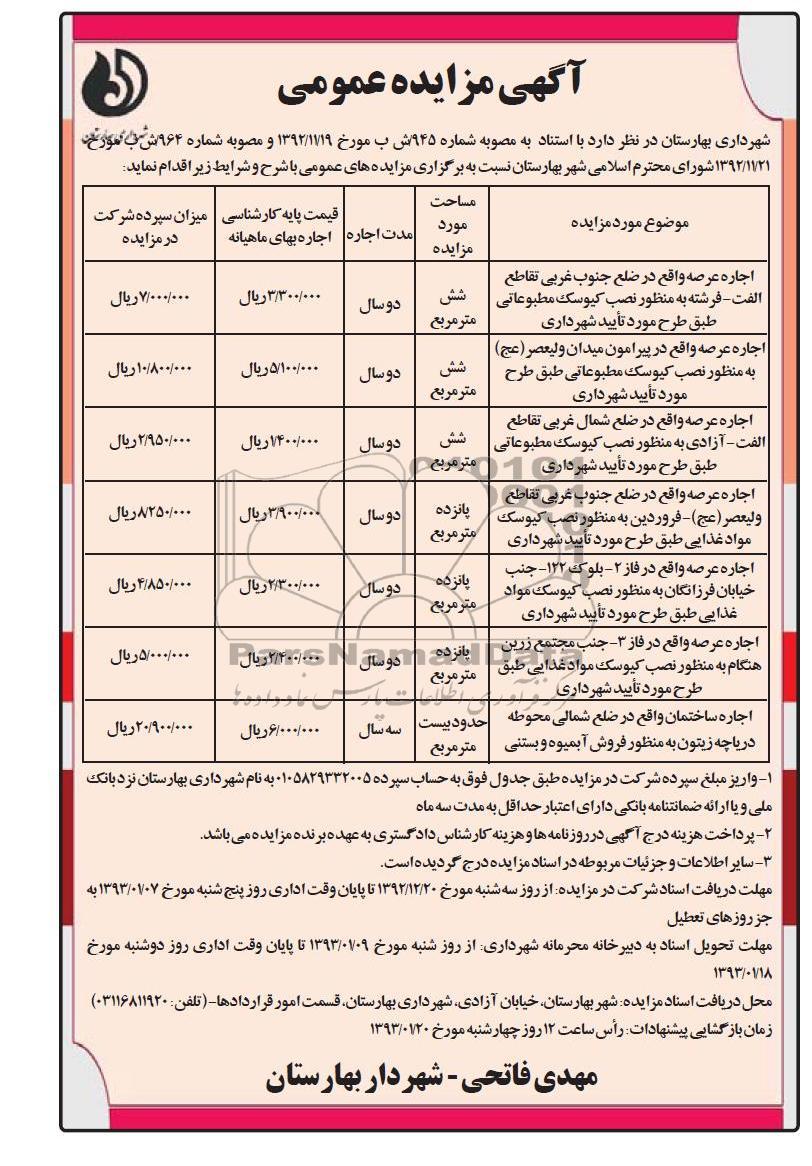 آگهی مزایده عمومی
شهرداری بهارستان
شهرداری بهارستان در نظر دارد با استناد به مصوبه شماره ۹۴۵/ش ب مورخ ۱۳۹۲/۱۱/۱۹ و مصوبه شماره ۹۶۴/ش ب مورخ
۱۳۹۲/۱۱/۲۱ شورای محترم اسلامی شهر بهارستان نسبت به برگزاری مزایده های عمومی با شرح و شرایط زیر اقدام نماید:
موضوع مورد مزایده
مساحت
مورد
مزایده
مدت اجاره
قیمت پایه کارشناسی
اجاره بهای ماهیانه
میزان سپرده شرکت
در مزایده
اجاره عرصه واقع در ضلع جنوب غربی تقاطع
الفت-فرشته به منظور نصب کیوسک مطبوعاتی
طبق طرح مورد تأیید شهرداری
شش
مترمربع
دو سال
۳/۳۰۰/۰۰۰ریال
۷/۰۰۰/۰۰۰ریال
اجاره عرصه واقع در پیرامون میدان ولیعصر(عج)
به منظور نصب کیوسک مطبوعاتی طبق طرح
مورد تأیید شهرداری
شش
مترمربع
دو سال
۵/۱۰۰/۰۰۰ریال
۱۰/۸۰۰/۰۰۰ریال
اجاره عرصه واقع در ضلع شمال غربی تقاطع
الفت-آزادی به منظور نصب کیوسک مطبوعاتی
طبق طرح مورد تأیید شهرداری
شش
مترمربع
دو سال
۱/۴۰۰/۰۰۰ریال
۲/۹۵۰/۰۰۰ریال
اجاره عرصه واقع در ضلع جنوب غربی تقاطع
ولیعصر(عج)-فروردین به منظور نصب کیوسک
مواد غذایی طبق طرح مورد تأیید شهرداری
پانزده
مترمربع
دو سال
۳/۹۰۰/۰۰۰ریال
۸/۲۵۰/۰۰۰ریال
اجاره عرصه واقع در فاز ۲- بلوک ۱۲۲- جنب
خیابان فرزانگان به منظور نصب کیوسک مواد
غذایی طبق طرح مورد تأیید شهرداری
پانزده
مترمربع
دو سال
۲/۳۰۰/۰۰۰ریال
۴/۸۵۰/۰۰۰ریال
اجاره عرصه واقع در فاز ۳-جنب مجتمع زرین
هنگام به منظور نصب کیوسک مواد غذایی طبق
طرح مورد تأیید شهرداری
پانزده
مترمربع
دو سال
۲/۴۰۰/۰۰۰ریال
۵/۰۰۰/۰۰۰ریال
اجاره ساختمان واقع در ضلع شمالی محوطه
دریاچه زیتون به منظور فروش آبمیوه و بستنی
حدود بیست
مترمربع
سه سال
۶/۰۰۰/۰۰۰ریال
۲۰/۹۰۰/۰۰۰ریال
ParsNamadData
مرکز فرآوری اطلاعات پارس نماد داده ها
۱-واریز مبلغ سپرده شرکت در مزایده طبق جدول فوق به حساب سپرده ۰۱۰۵۸۲۹۳۳۲۰۰۵ به نام شهرداری بهارستان نزد بانک
ملی و یا ارائه ضمانتنامه بانکی دارای اعتبار حداقل به مدت سه ماه
۲-پرداخت هزینه درج آگهی در روزنامه ها و هزینه کارشناس دادگستری به عهده برنده مزایده می باشد.
۳-سایر اطلاعات و جزئیات مربوطه در اسناد مزایده درج گردیده است.
مهلت دریافت اسناد شرکت در مزایده: از روز سه شنبه مورخ ۱۳۹۲/۱۲/۲۰ تا پایان وقت اداری روز پنج شنبه مورخ ۱۳۹۳/۰۱/۰۷ به
جز روزهای تعطیل
مهلت تحویل اسناد به دبیرخانه محرمانه شهرداری: از روز شنبه مورخ ۱۳۹۳/۰۱/۰۹ تا پایان وقت اداری روز دوشنبه مورخ
۱۳۹۳/۰۱/۱۸
محل دریافت اسناد مزایده: شهر بهارستان، خیابان آزادی، شهرداری بهارستان، قسمت امور قراردادها-(تلفن: ۰۳۱۱۶۸۱۱۹۲۰)
زمان بازگشایی پیشنهادات: رأس ساعت ۱۲ روز چهارشنبه مورخ ۱۳۹۳/۰۱/۲۰
مهدی فاتحی- شهردار بهارستان